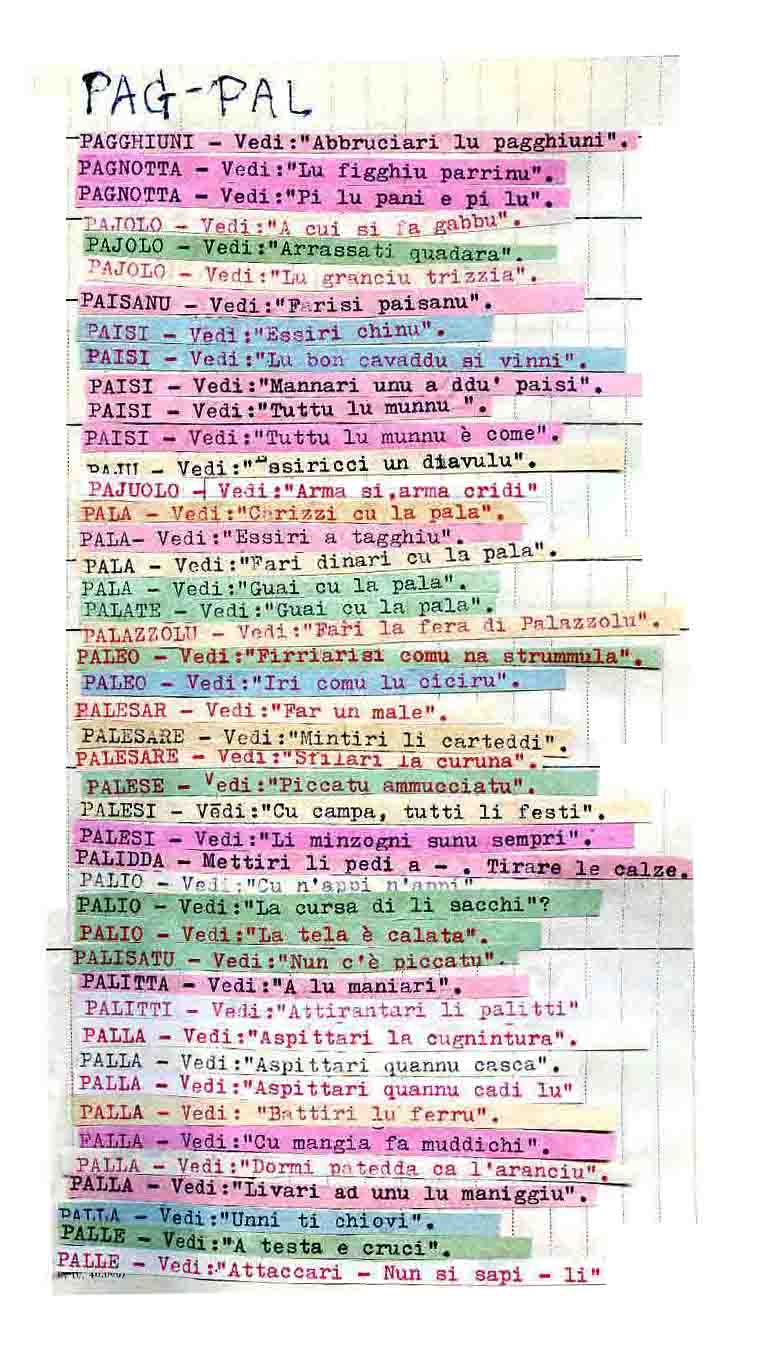 PAG-PAL
PAGGHIUNI - Vedi:"Abbruciari lu pagghiuni".
PAGNOTTA - Vedi:"Lu figghiu parrinu".
PAGNOTTA - Vedi:"Pi lu pani e pi lu".
PAJOLO - Vedi:"A cui si fa gabbu".
PAJOLO - Vedi:"Arrassati quadara".
PAJOLO - Vedi:"Lu granciu trizzia".
PAISANU - Vedi:"Farisi paisanu".
PAISI - Vedi:"Essiri chinu".
PAISI - Vedi:"Lu bon cavaddu si vinni".
PAISI - Vedi:"Mannari unu a ddu' paisi".
PAISI - Vedi:"Tuttu lu munnu ".
PAISI - Vedi:"Tuttu lu munnu è come".
PAJU - Vedi:"Essiricci un diavulu".
PAJUOLO - Vedi:"Arma si,arma cridi"
PALA - Vedi:"Carizzi cu la pala".
PALA- Vedi:"Essiri a tagghiu".
PALA - Vedi:"Fari dinari cu la pala".
PALA - Vedi:"Guai cu la pala".
PALATE - Vedi:"Guai cu la pala".
PALAZZOLU - Vedi:"Fari la fera di Palazzolu".
PALEO - Vedi:"Firriarisi comu na strummula".
PALEO - Vedi:"Iri comu lu ciciru".
PALESAR - Vedi:"Far un male".
PALESARE - Vedi:"Mintiri li carteddi".
PALESARE - Vedi:"Sfilari la curuna".
PALESE - Vedi:"Piccatu ammucciatu".
PALESI - Vedi:"Cu campa, tutti li festi".
PALESI - Vedi:"Li minzogni sunu sempri".
PALIDDA - Mettiri li pedi a - . Tirare le calze.
PALIO - Vedi:"Cu n'appi n'appi"
PALIO - Vedi:"La cursa di li sacchi"?
PALIO - Vedi:"La tela è calata".
PALISATU - Vedi:"Nun c'è piccatu".
PALITTA - Vedi:"A lu maniari".
PALITTI - Vedi:"Attirantari li palitti"
PALLA - Vedi:"Aspittari la cugnintura".
PALLA - Vedi:"Aspittari quannu casca".
PALLA - Vedi:"Aspittari quannu cadi lu"
PALLA - Vedi: "Battiri lu ferru".
PALLA - Vedi:"Cu mangia fa muddichi".
PALLA - Vedi:"Dormi patedda ca l'aranciu".
PALLA - Vedi:"Livari ad unu lu maniggiu".
PALLA - Vedi:"Unni ti chiovi".
PALLE - Vedi:"A testa e cruci".
PALLE - Vedi:"Attaccari - Nun si sapi - li"